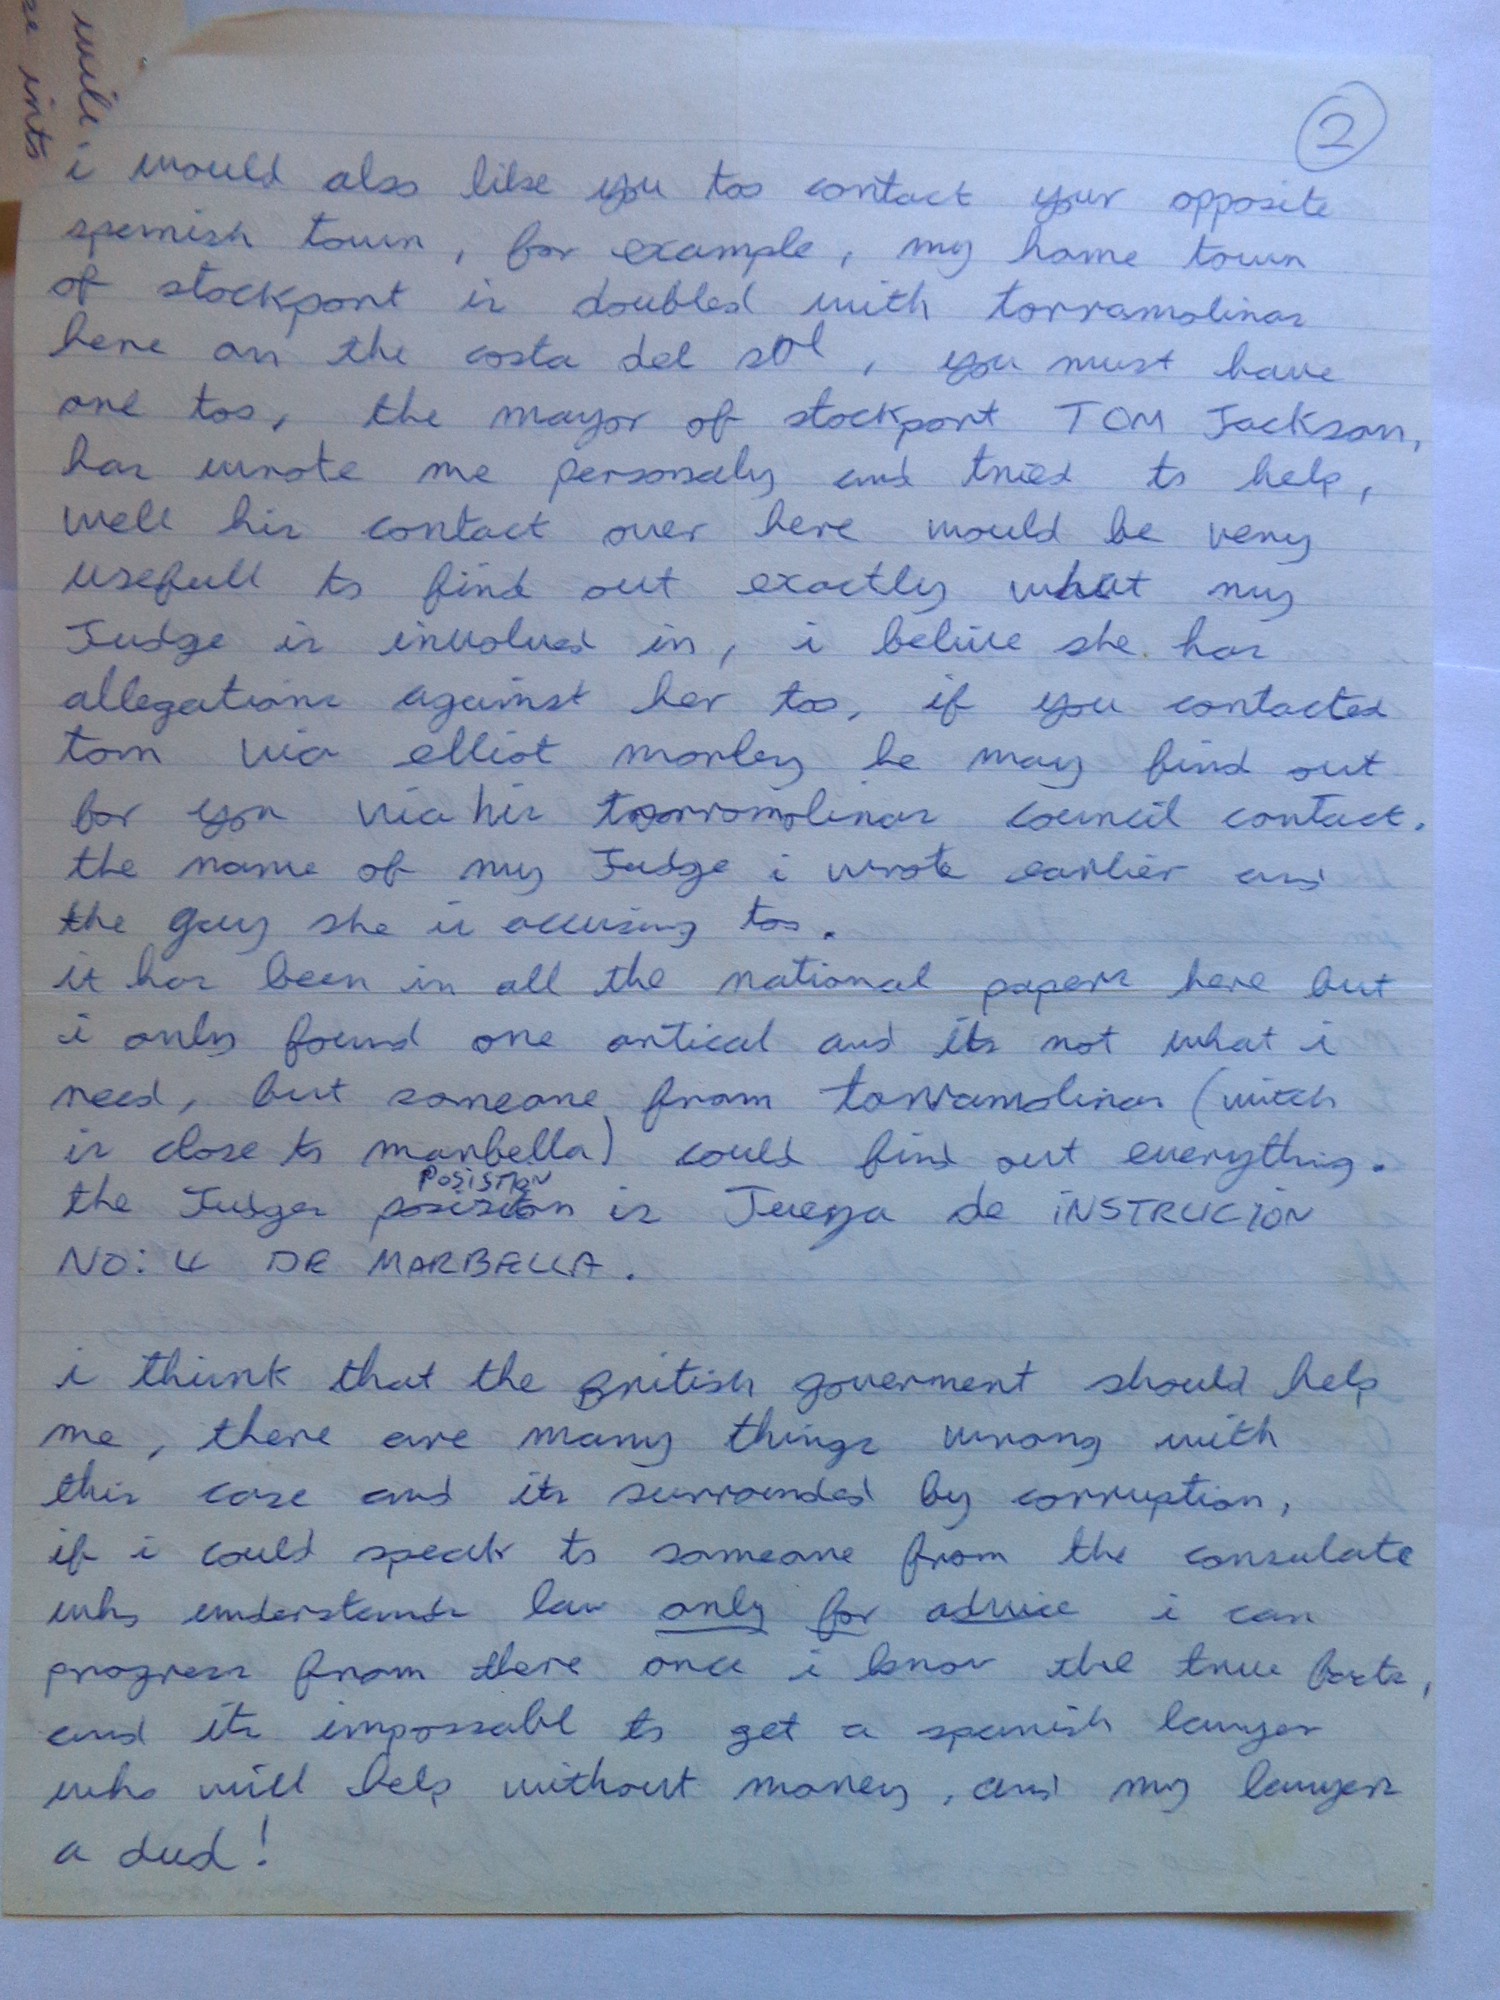 will
ints
2
i would also like you too contact your opposite
spanish town, for example, my home town
of stockport is doubled with torramolinas
here on the costa del sol, you must have
one too, the mayor of stockport TOM Jackson,
has wrote me personaly and tried to help,
well his contact over here would be very
usefull to find out exactly what my
Judge is involved in, i belive she has
allegations against her too, if you contacted
tom via elliot morley he may find out
for you via his torramolinas council contact.
the name of my Judge i wrote earlier and
the guy she is accusing too.
it has been in all the national papers here but
i only found one artical and its not what i
need, but someone from torramolinas (witch
is close to marbella) could find out everything.
POSISTION
the Judges is Jueza de iNSTRUCION
NO: 4 DE MARBELLA.
i think that the British goverment should help
me, there are many things wrong with
this case and its surrounded by corruption,
if i could speak to someone from the consulate
who understands law only for advice i can
progress from there once i know the true facts,
and its impossabl to get a spanish lawyer
who will help without money, and my lawyers
a dud!